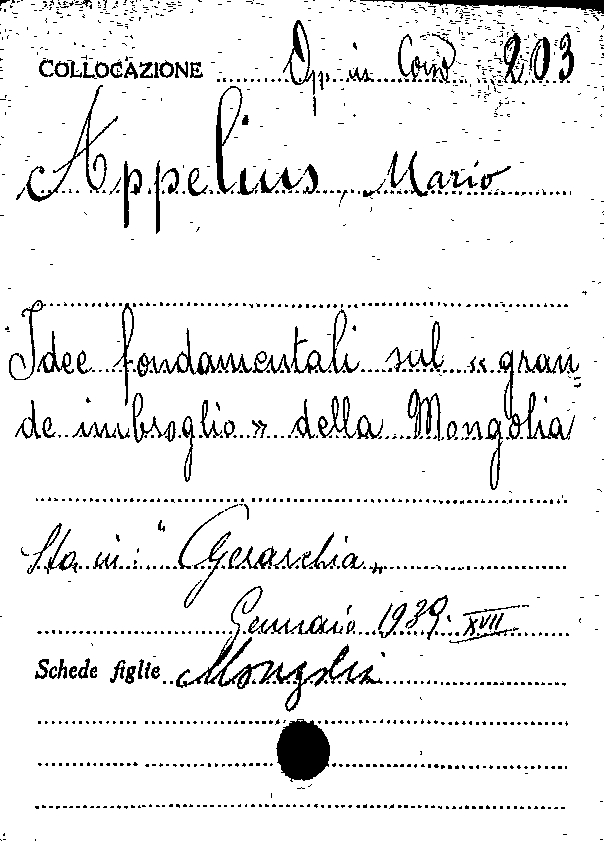 COLLOCAZIONE Op. in Cons 203
Appelius, Mario
Idee fondamentali sul « gran=
de imbroglio » della Mongolia
Sta in: " Gerarchia „
Gennaio 1939. XVII
Schede figlie Mongolia